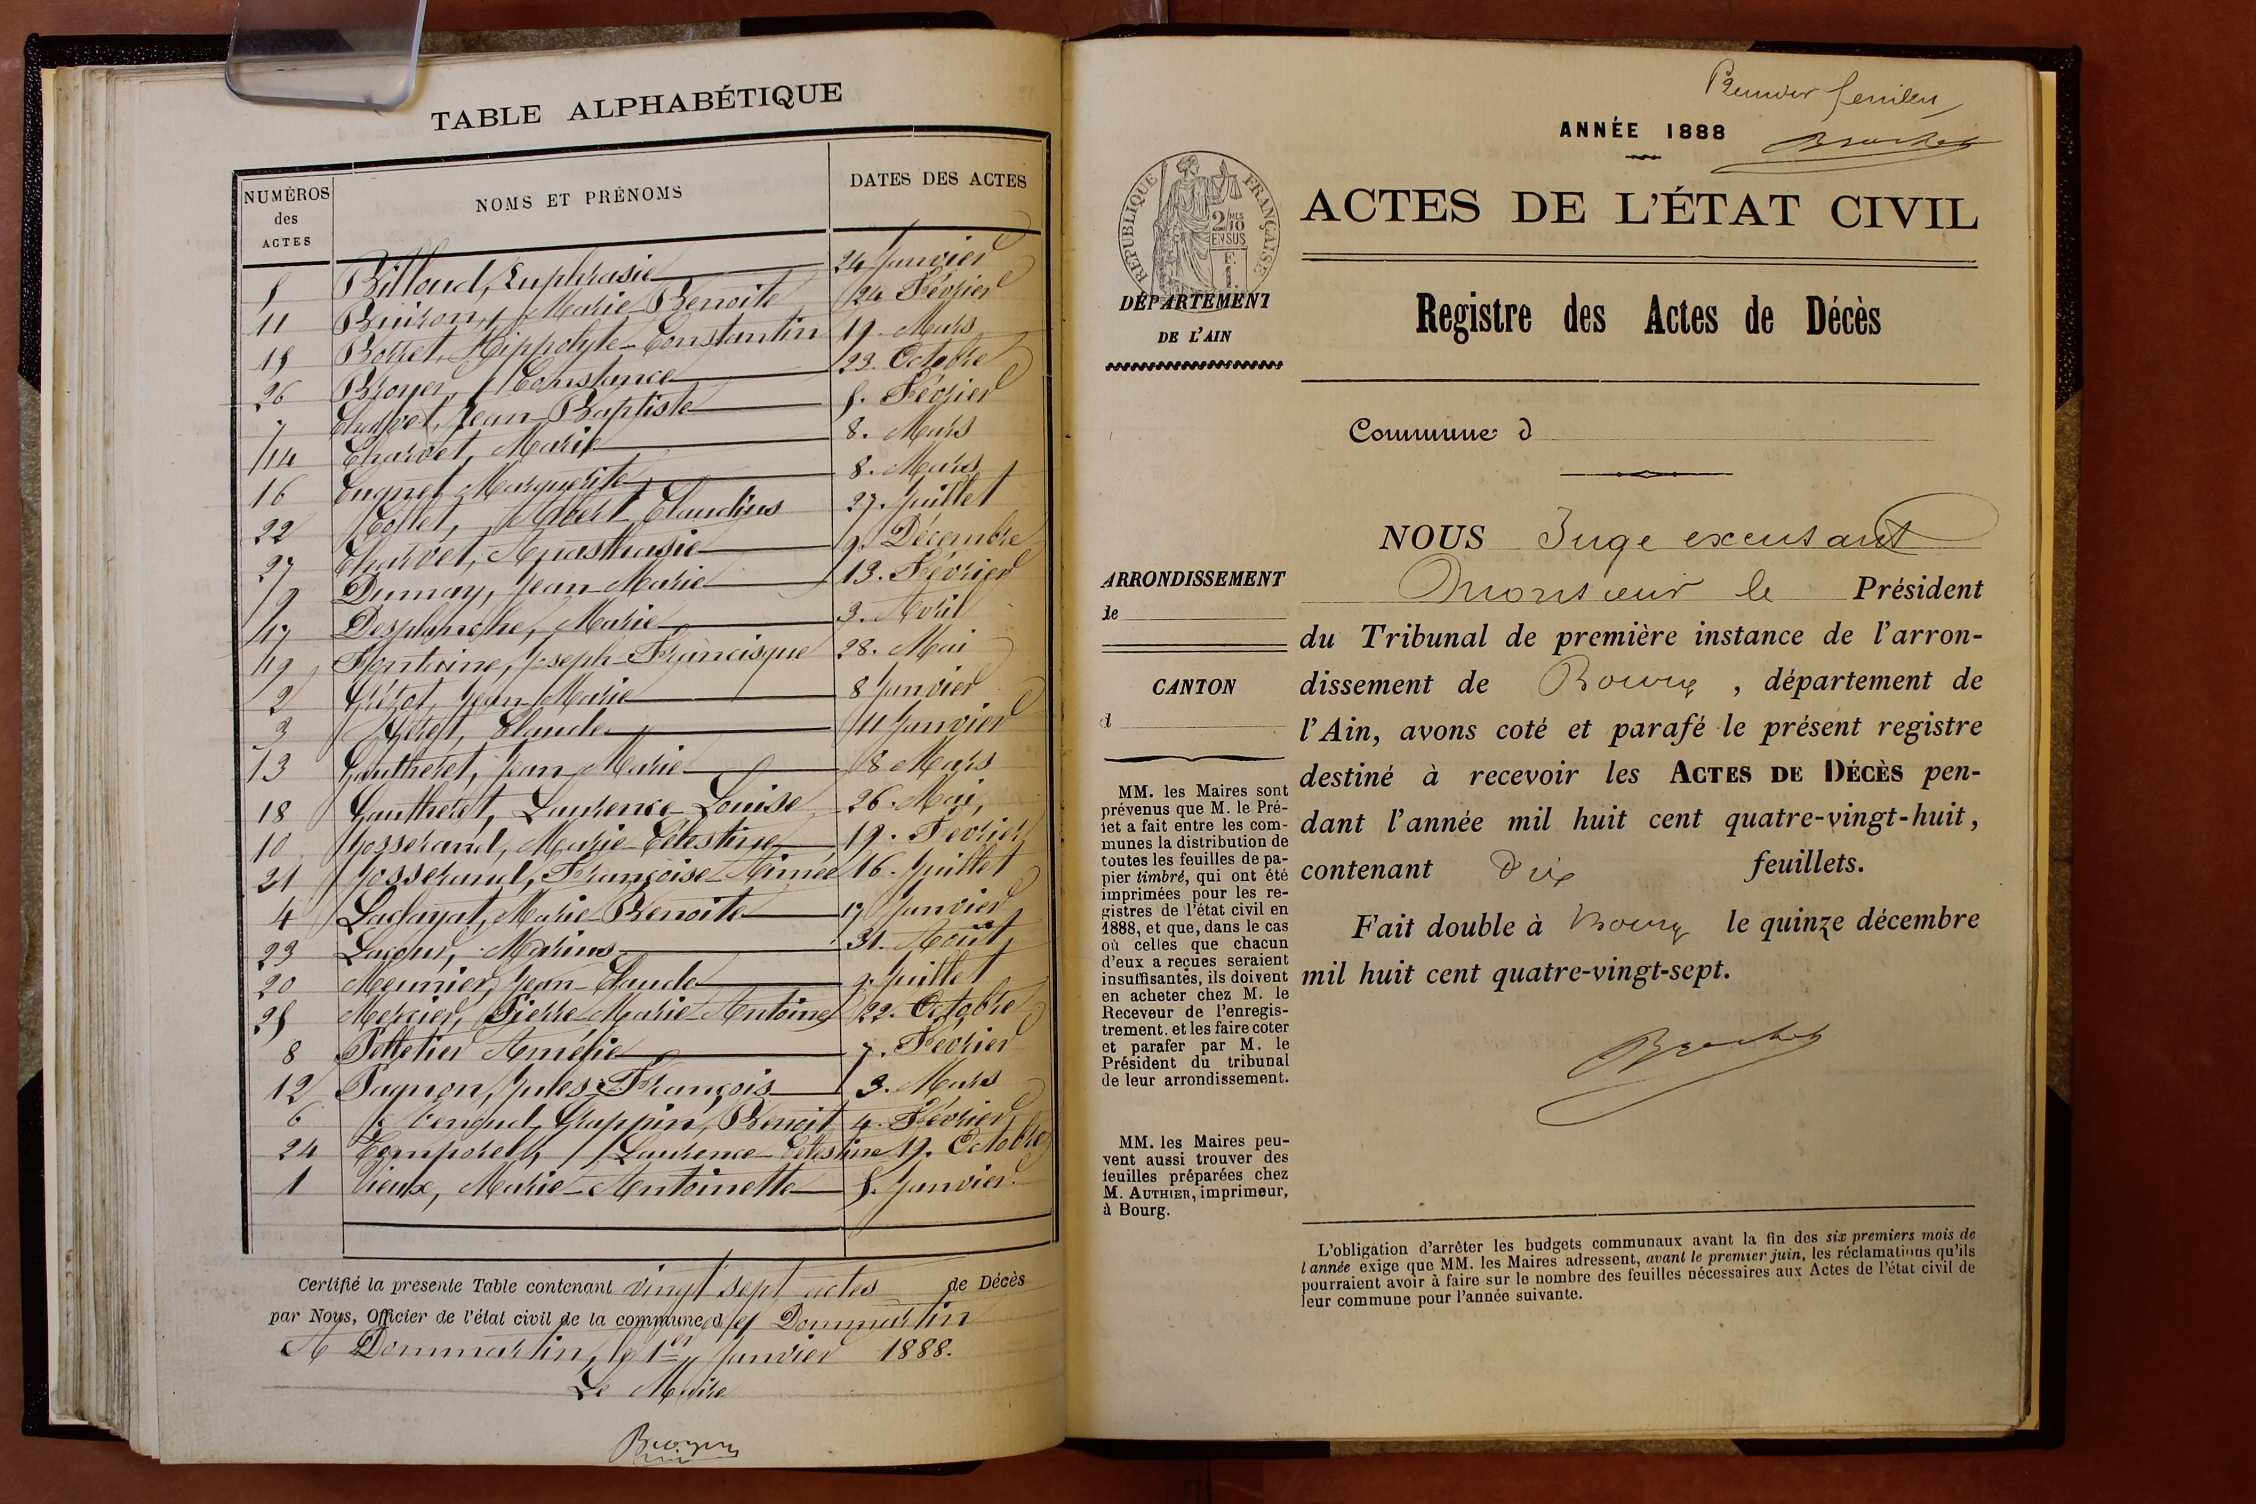 TABLE ALPHABÉTIQUE
NUMÉROS des ACTES
NOMS ET PRÉNOMS
DATES DES ACTES
5 Billoud, Euphrasie 24 Janvier
11 Buiron, Marie-Benoite 24 Février
15 Borret, Hippolyte-Constantin 19. Mars
26 Broyer, Constance 23. Octobre
7 Charvet, Jean-Baptiste 5. Février
14 Charvet, Marie 8. Mars
16 Cugnet Marguerite 8. Mars
22 Collet, Albert Claudius 27. Juillet
27 Charvet, Anasthasie 9. Décembre
9 Dumay, Jean-Marie 13. Février
17 Desplanche, Marie 3. Avril
19 Fontaine, Joseph-Francisque 28. Mai
2 Jean-Marie 8 Janvier
3 Claude 11 Janvier
13 Gautheret, Jean-Marie 8 Mars
18 Gautheret, Laurence-Louise 26. Mai,
10 Josserand, Marie-Célestine 19. Février
21 Josserand, Françoise-Aimée 16. Juillet
4 Marie-Benoite 17 Janvier
23 Lacour, Marius 31. Août
20 Meunier, Jean-Claude 9. Juillet
25 Mercier, Pierre-Marie-Antoine 22. Octobre
8 Pelletier Amélie 7. Février
12 Pagnon, Jules-François 3. Mars
6 Grappin, Benoit 4. Février
24 Temporel, Laurence-Célestine 19. Octobre
1 Vieux, Marie-Antoinette 5. Janvier
Certifié la présente Table contenant vingt sept actes de Décès
par Nous, Officier de l'état civil de la commune de Dommartin
A Dommartin, le 1er Janvier 1888.
Le Maire
Broyer
Premier feuillet
Brochet
ANNÉE 1888
RÉPUBLIQUE FRANÇAISE
2/10 EN SUS
ACTES DE L'ÉTAT CIVIL
DÉPARTEMENT
DE L'AIN
Registre des Actes de Décès
Commune d
NOUS Juge excusant
Monsieur le Président
du Tribunal de première instance de l'arron-
dissement de Bourg, département de
l'Ain, avons coté et parafé le présent registre
destiné à recevoir les ACTES DE DÉCÈS pen-
dant l'année mil huit cent quatre-vingt-huit,
contenant Dix feuillets.
Fait double à Bourg le quinze décembre
mil huit cent quatre-vingt-sept.
Brochet
ARRONDISSEMENT
de
CANTON
d
MM. les Maires sont
prévenus que M. le Pré-
fet a fait entre les com-
munes la distribution de
toutes les feuilles de pa-
pier timbré, qui ont été
imprimées pour les re-
gistres de l'état civil en
1888, et que, dans le cas
où celles que chacun
d'eux a reçues seraient
insuffisantes, ils doivent
en acheter chez M. le
Receveur de l'enregis-
trement, et les faire coter
et parafer par M. le
Président du tribunal
de leur arrondissement.
MM. les Maires peu-
vent aussi trouver des
feuilles préparées chez
M. AUTHIER, imprimeur,
à Bourg.
L'obligation d'arrêter les budgets communaux avant la fin des six premiers mois de
l'année exige que MM. les Maires adressent, avant le premier juin, les réclamations qu'ils
pourraient avoir à faire sur le nombre des feuilles nécessaires aux Actes de l'état civil de
leur commune pour l'année suivante.